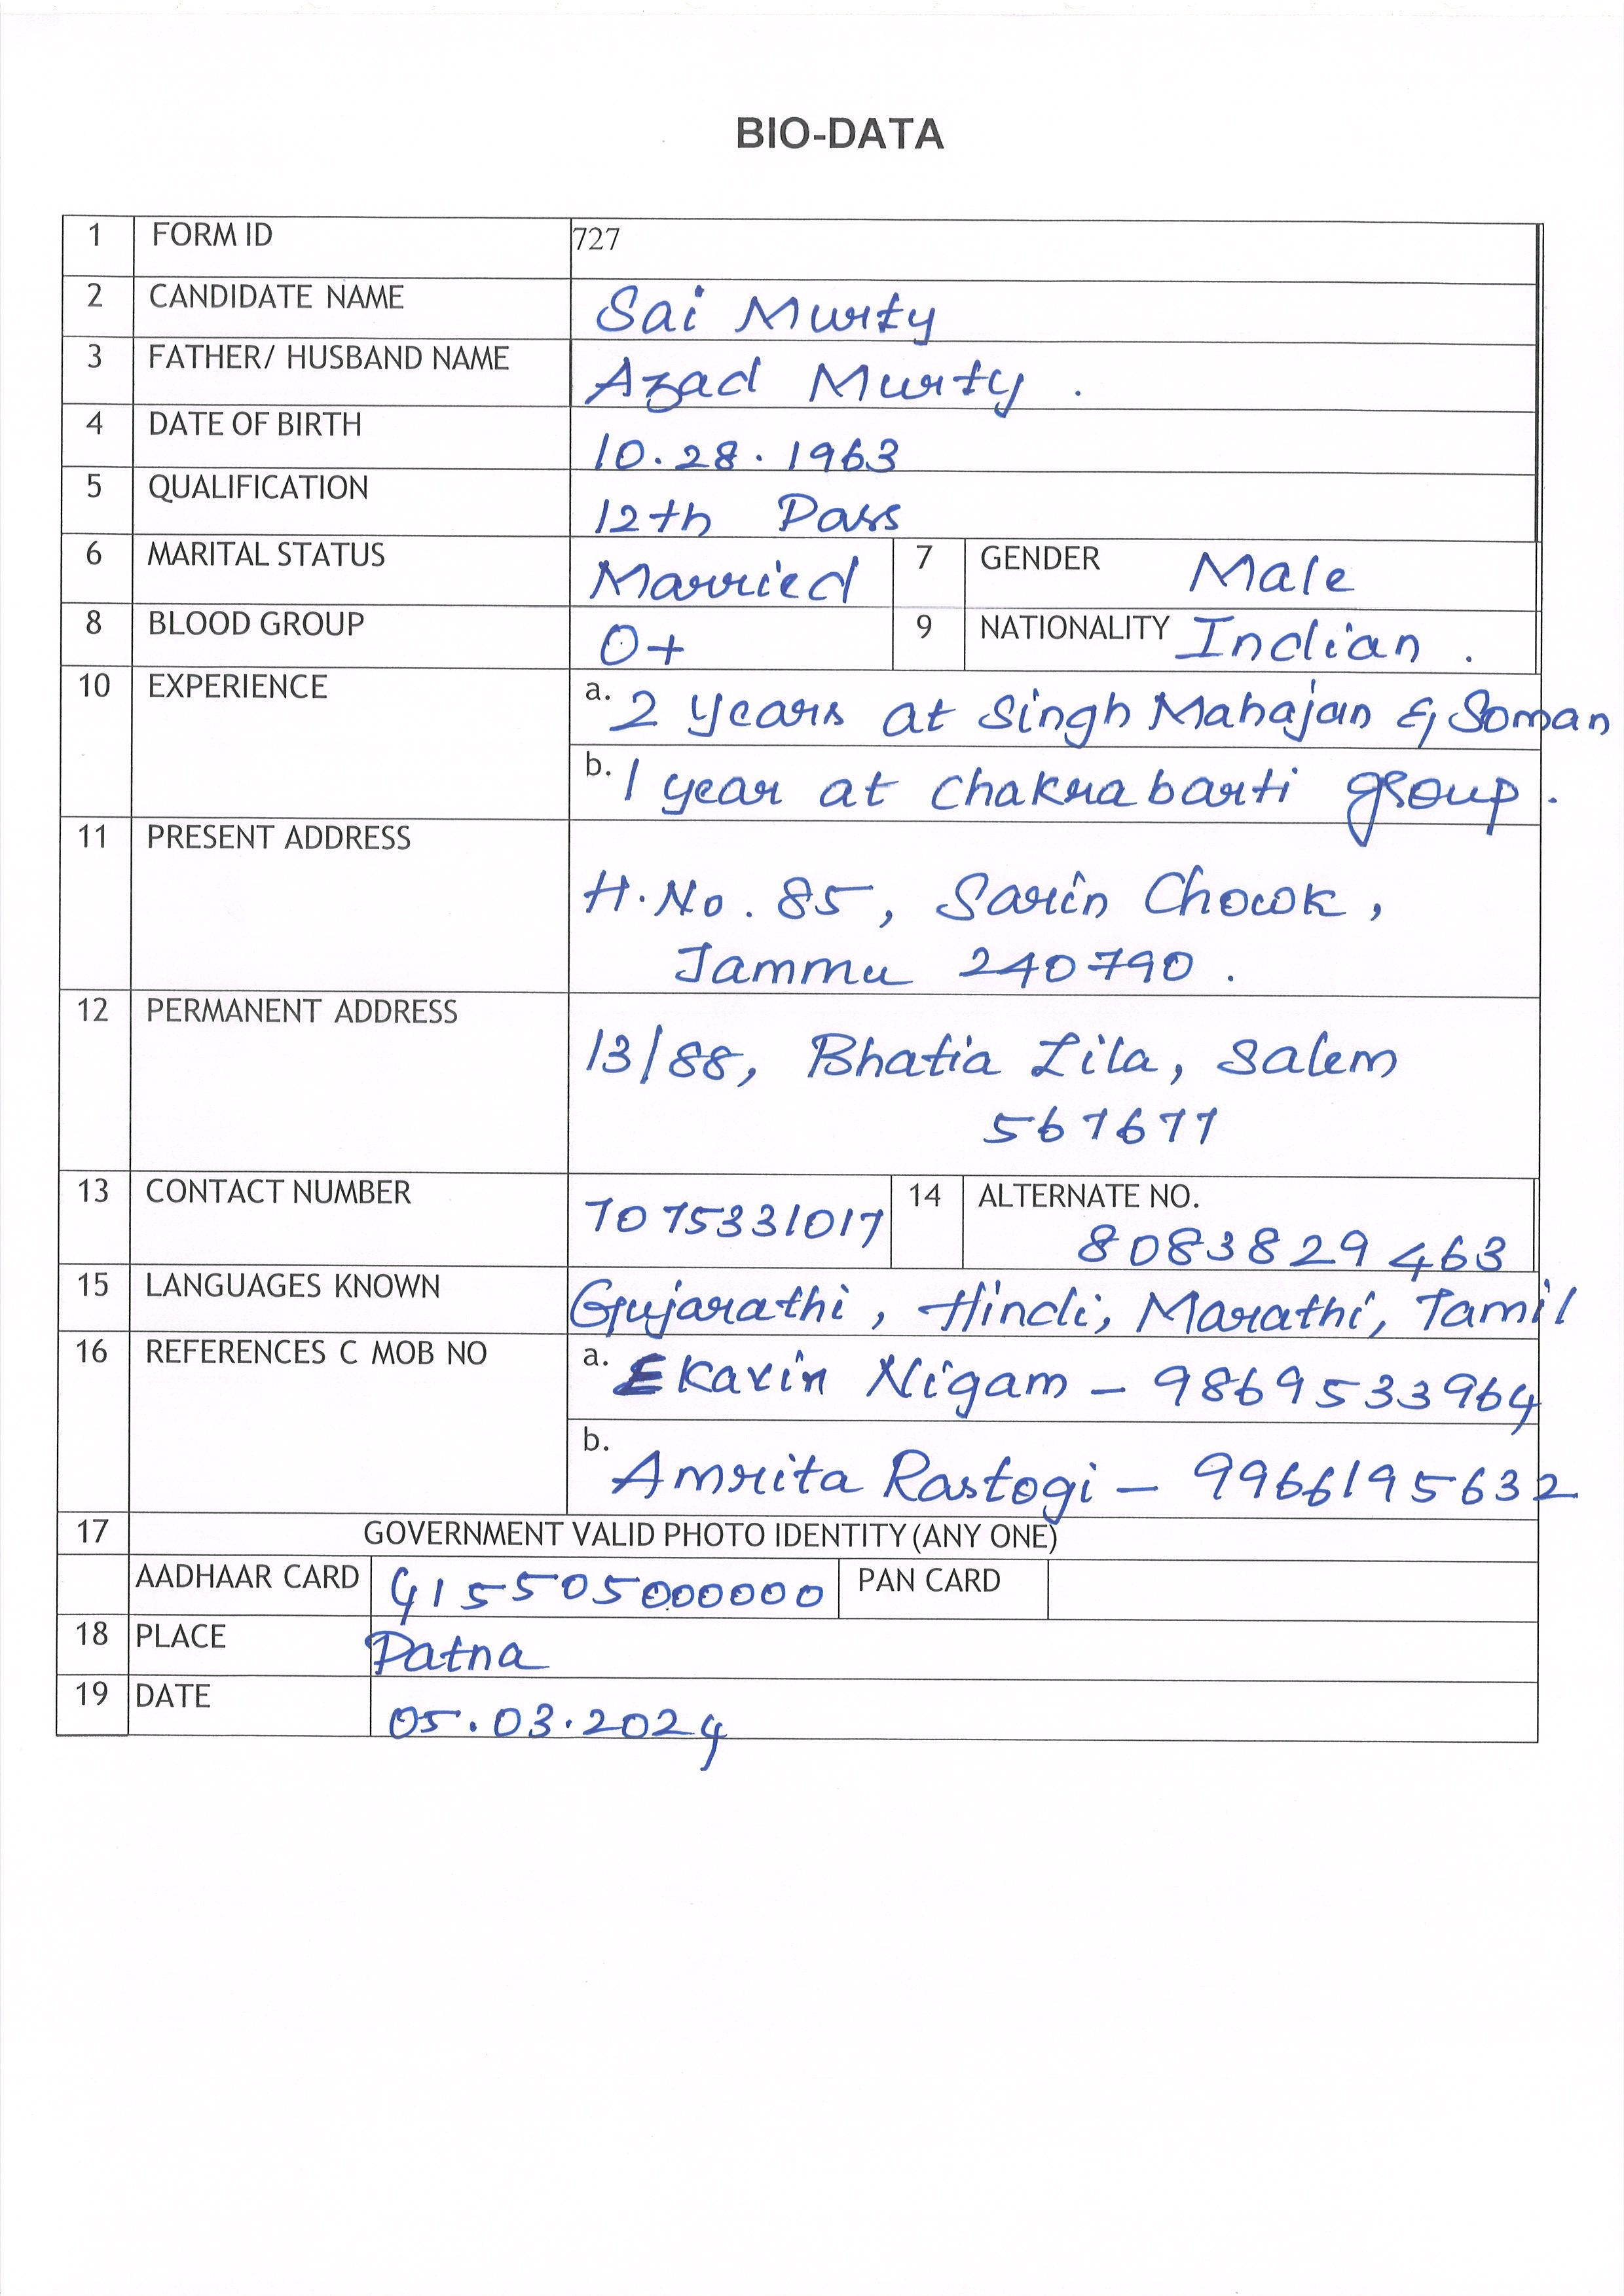 BIO-DATA
1 FORM ID 727
2 CANDIDATE NAME Sai Murty
3 FATHER/ HUSBAND NAME Azad Murty .
4 DATE OF BIRTH 10.28.1963
5 QUALIFICATION 12th Pass
6 MARITAL STATUS Married 7 GENDER Male
8 BLOOD GROUP O+ 9 NATIONALITY Indian .
10 EXPERIENCE a. 2 years at Singh Mahajan & Soman
b. 1 year at Chakrabarti group .
11 PRESENT ADDRESS
H.No. 85, Sarin Chowk,
Jammu 240790 .
12 PERMANENT ADDRESS
13/88, Bhatia Lila, Salem
567677
13 CONTACT NUMBER 7075331017 14 ALTERNATE NO.
8083829463
15 LANGUAGES KNOWN Gujarathi, Hindi, Marathi, Tamil
16 REFERENCES C MOB NO a. Ekavin Nigam - 9869533964
b. Amrita Rastogi - 9966195632
17 GOVERNMENT VALID PHOTO IDENTITY (ANY ONE)
AADHAAR CARD 415505000000 PAN CARD
18 PLACE Patna
19 DATE 05.03.2024